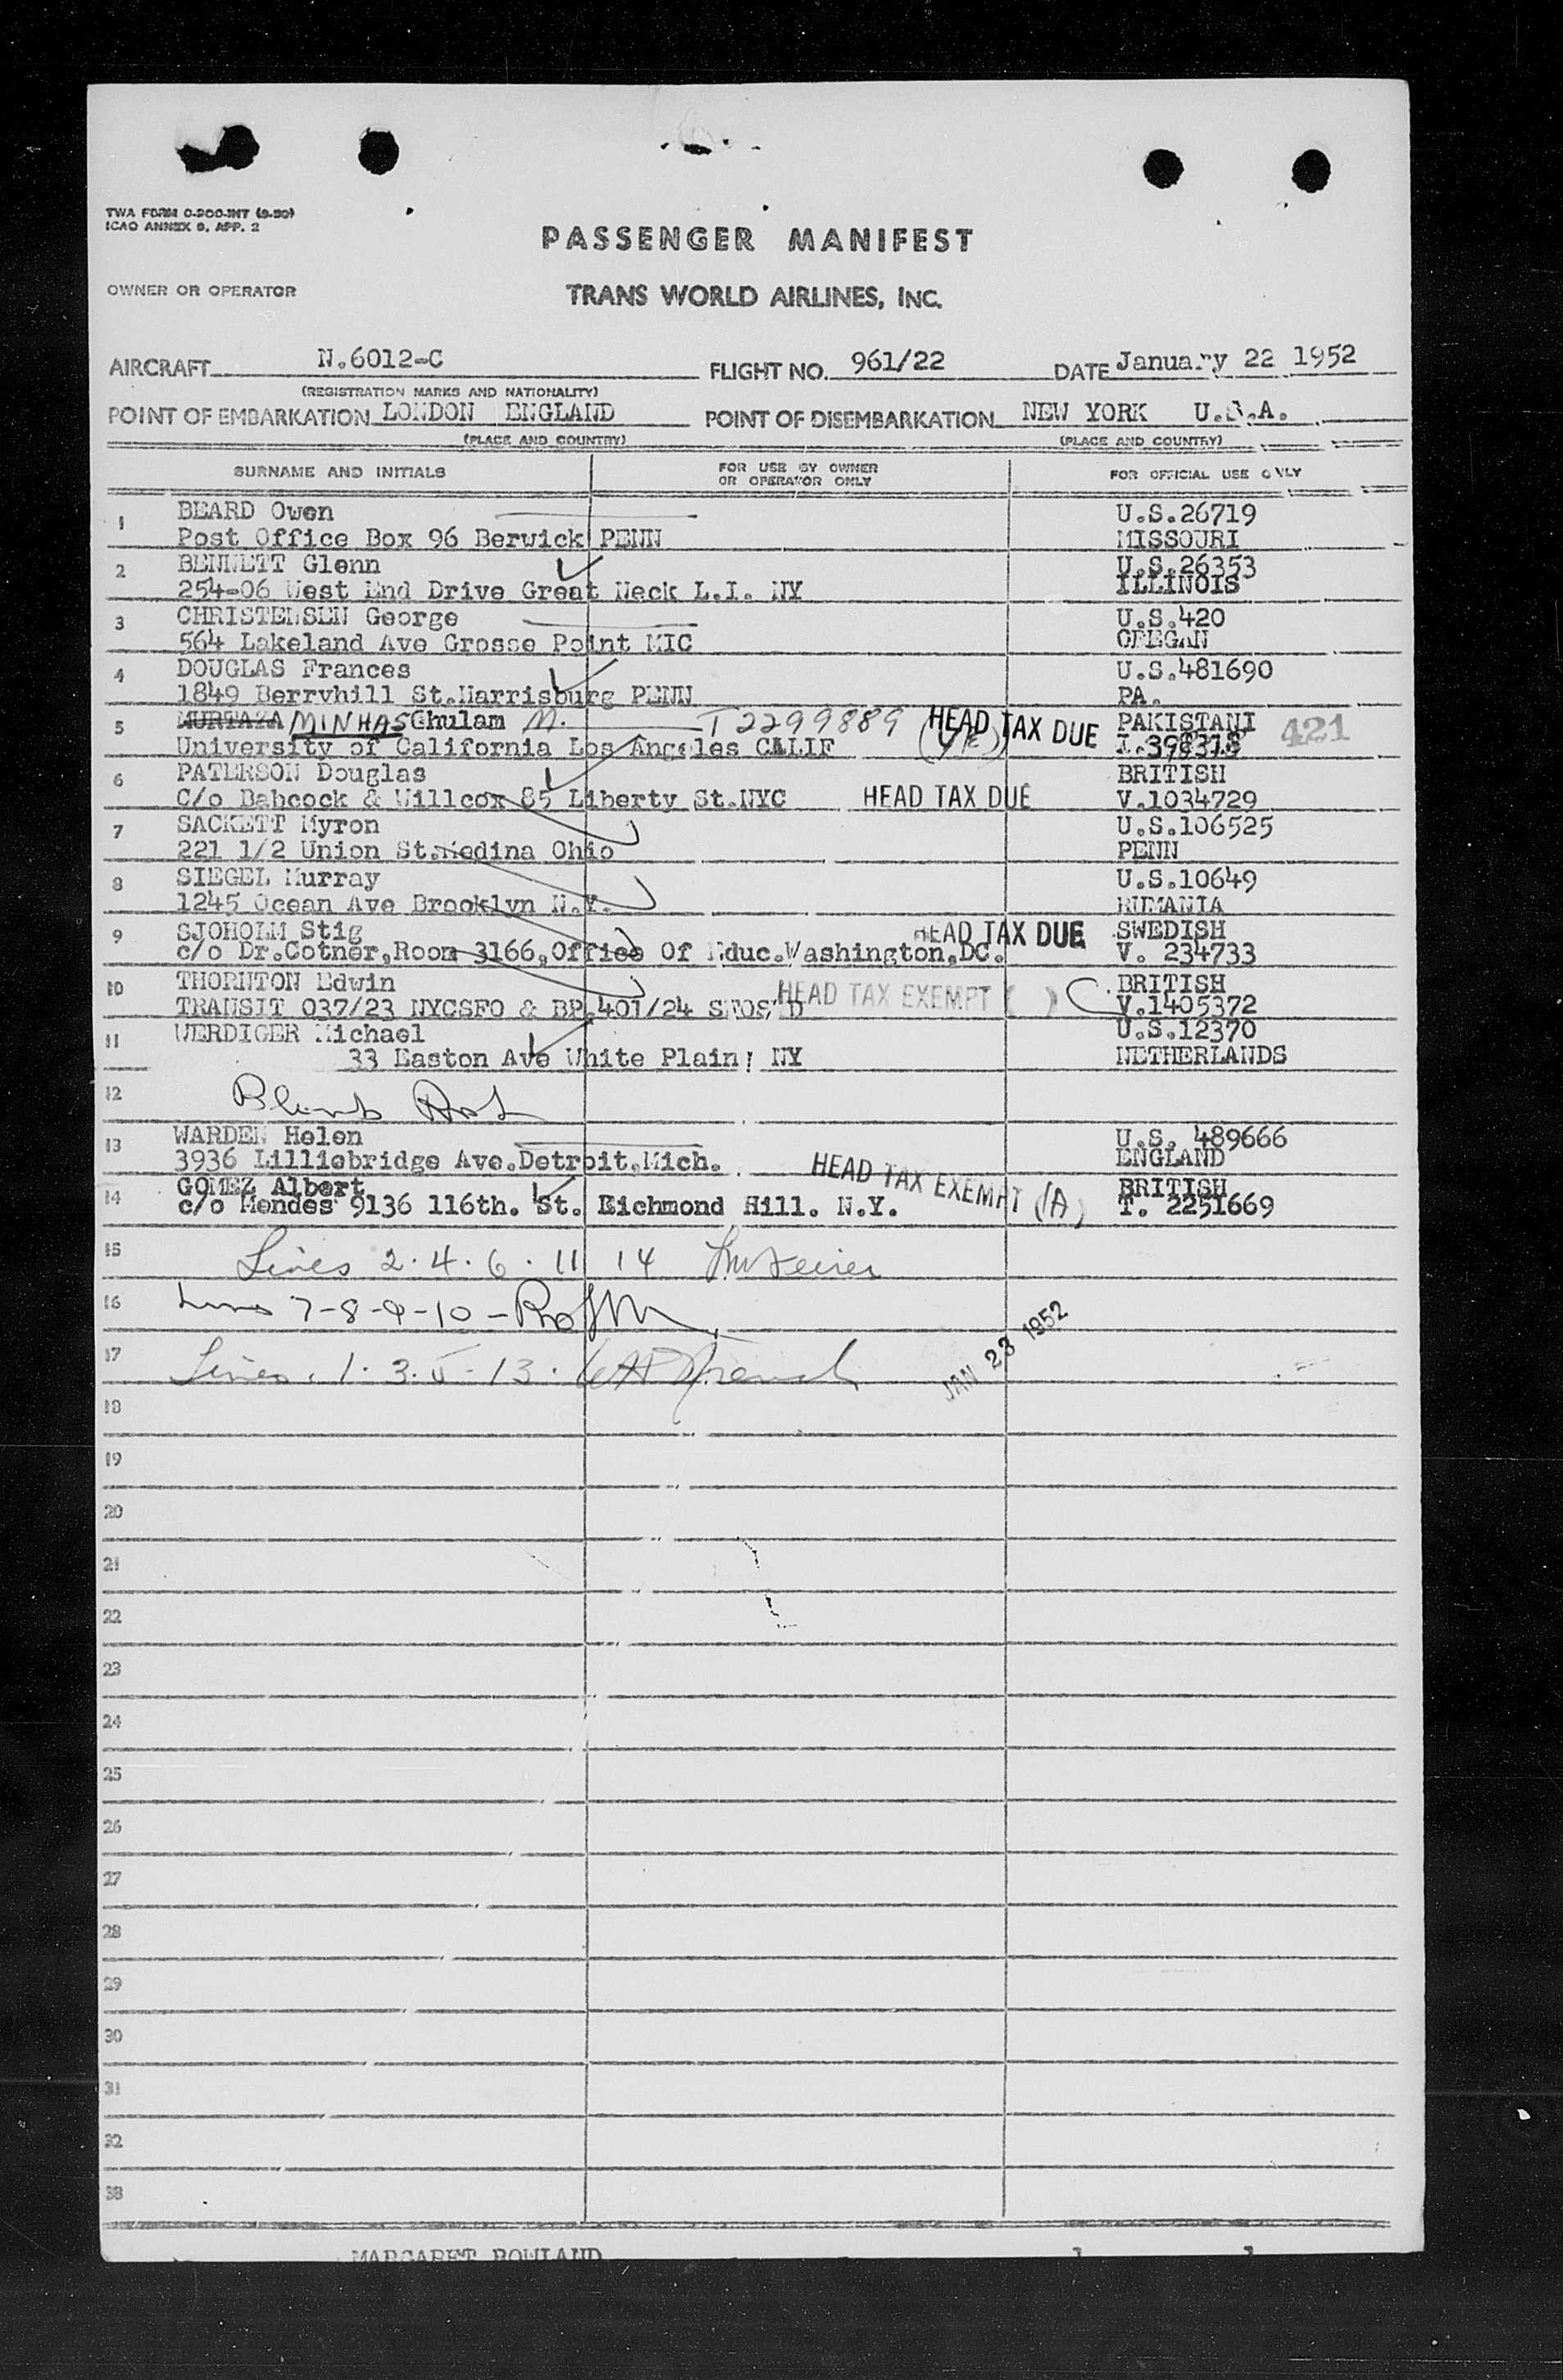 TWA FORM O-200-INT (9-50)
ICAO ANNEX 9, APP. 2
PASSENGER MANIFEST
OWNER OR OPERATOR
TRANS WORLD AIRLINES, INC.
AIRCRAFT N.6012-C FLIGHT NO. 961/22 DATE January 22 1952
(REGISTRATION MARKS AND NATIONALITY)
POINT OF EMBARKATION LONDON ENGLAND POINT OF DISEMBARKATION NEW YORK U.S.A.
(PLACE AND COUNTRY) (PLACE AND COUNTRY)
SURNAME AND INITIALS FOR USE BY OWNER OR OPERATOR ONLY FOR OFFICIAL USE ONLY
1 BEARD Owen U.S.26719
Post Office Box 96 Berwick PENN MISSOURI
2 BENNETT Glenn U.S.26353
254-06 West End Drive Great Neck L.I. NY ILLINOIS
3 CHRISTENSEN George U.S.420
564 Lakeland Ave Grosse Point MIC OREGAN
4 DOUGLAS Frances U.S.481690
1849 Berryhill St.Harrisburg PENN PA.
5 MURTAZA MINHAS Ghulam M. T2299889 HEAD TAX DUE PAKISTANI 421
University of California Los Angeles CALIF
6 PATERSON Douglas BRITISH
C/o Babcock & Willcox 85 Liberty St.NYC HEAD TAX DUE V.1034729
7 SACKETT Myron U.S.106525
221 1/2 Union St.Medina Ohio PENN
8 SIEGEL Murray U.S.10649
1245 Ocean Ave Brooklyn N.Y. RUMANIA
9 SJOHOLM Stig HEAD TAX DUE SWEDISH
c/o Dr.Cotner,Room 3166,Office Of Educ.Washington,DC. V. 234733
10 THORNTON Edwin HEAD TAX EXEMPT ( ) BRITISH
TRANSIT 037/23 NYCSFO & BP 401/24 V.1405372
11 WERDIGER Michael U.S.12370
33 Easton Ave White Plain; NY NETHERLANDS
12
13 WARDEN Helen U.S. 489666
3936 Lilliebridge Ave.Detroit.Mich. ENGLAND
14 GOMEZ Albert HEAD TAX EXEMPT (A) BRITISH
c/o Mendes 9136 116th. St. Richmond Hill. N.Y. T. 2251669
15 Lines 2.4.6.11 14
16 Lines 7-8-9-10-
17 Lines. 1.3.5-13.
JAN 23 1952
18
19
20
21
22
23
24
25
26
27
28
29
30
31
32
33
MARGARET ROWLAND